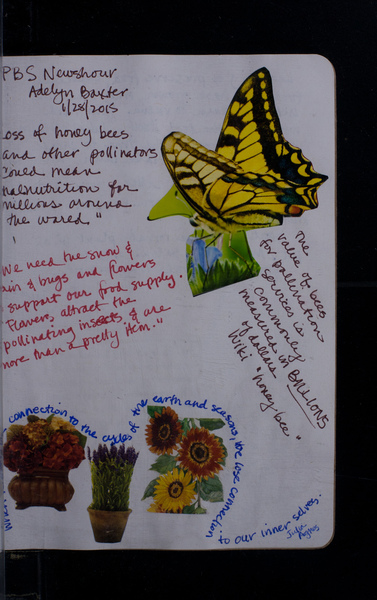 PBS Newshour
Adelyn Baxter
1/28/2015
oss of honey bees
and other pollinators
could mean
malnutrition for
millions around
the world"
We need the snow &
ain & bugs and flowers
support our food supply.
Flowers, attract the
pollinating insects & are
more than a pretty item."
The
value of bees
for pollination
services is
commonly
measured in BILLIONS
of dollars
Wiki "honey bee"
connection to the cycles of the earth and seasons, we lose connection
to our inner selves.